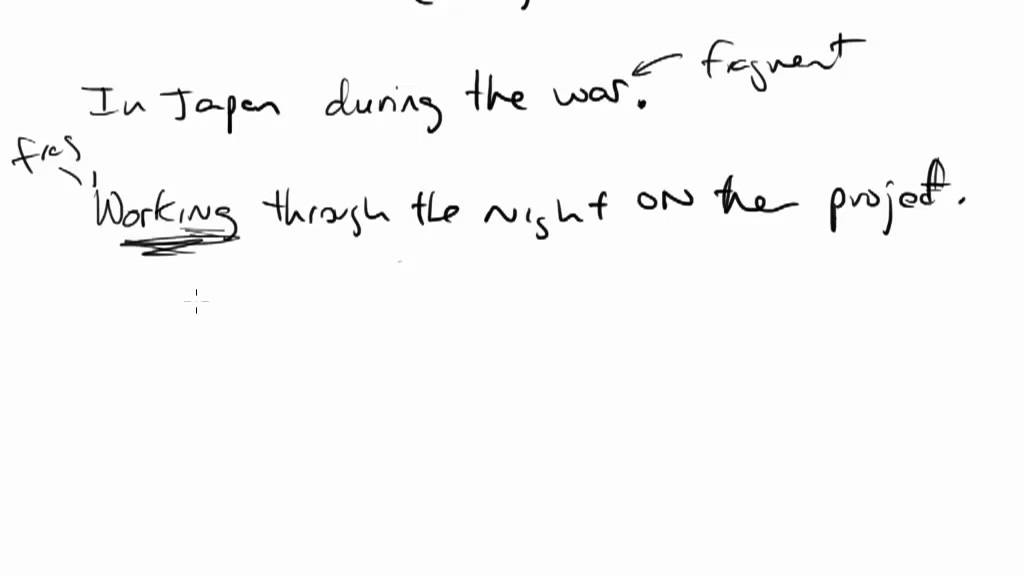 In Japan during the war. fragment
frag
Working through the night on the project.